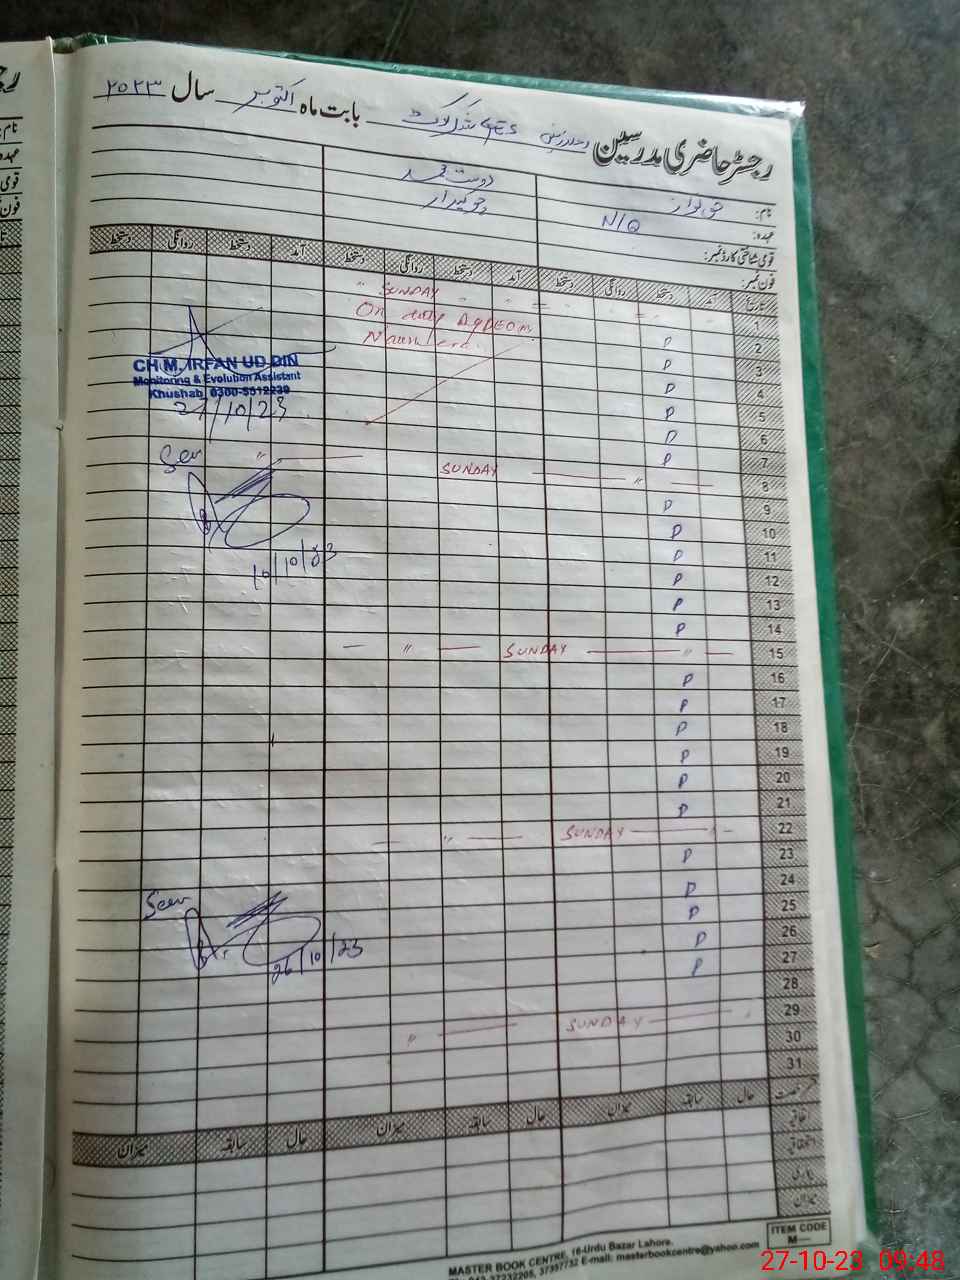 رجسٹر حاضری مدرسین GES بابت ماہ اکتوبر سال ۲۰۲۳
نام:
دوست محمد
عہدہ: N/Q چوکیدار
قومی شناختی کارڈ نمبر:
فون نمبر:
تاریخ آمد دستخط روانگی دستخط آمد دستخط روانگی دستخط آمد دستخط روانگی دستخط
1 " SUNDAY
On duty Dy DEO
2 P
3 P
4 P
5 P
6 P
7 P
8 SUNDAY "
9 P
10 P
11 P
12 P
13 P
14 P
15 " SUNDAY "
16 P
17 P
18 P
19 P
20 P
21 P
22 " SUNDAY "
23 P
24 P
25 P
26 P
27 P
28
29 " SUNDAY
30
31
CH M. IRFAN UD DIN
Monitoring & Evolution Assistant
Khushab 0300-5512239
27/10/23
Seen
10/10/23
Seen
26/10/23
رخصت حال سابقہ میزان حال سابقہ میزان حال سابقہ میزان
اتفاقیہ
بیماری
میزان
ITEM CODE
M—
MASTER BOOK CENTRE, 16-Urdu Bazar Lahore.
37232205, 37357732 E-mail: masterbookcentre@yahoo.com
27-10-23 09:48